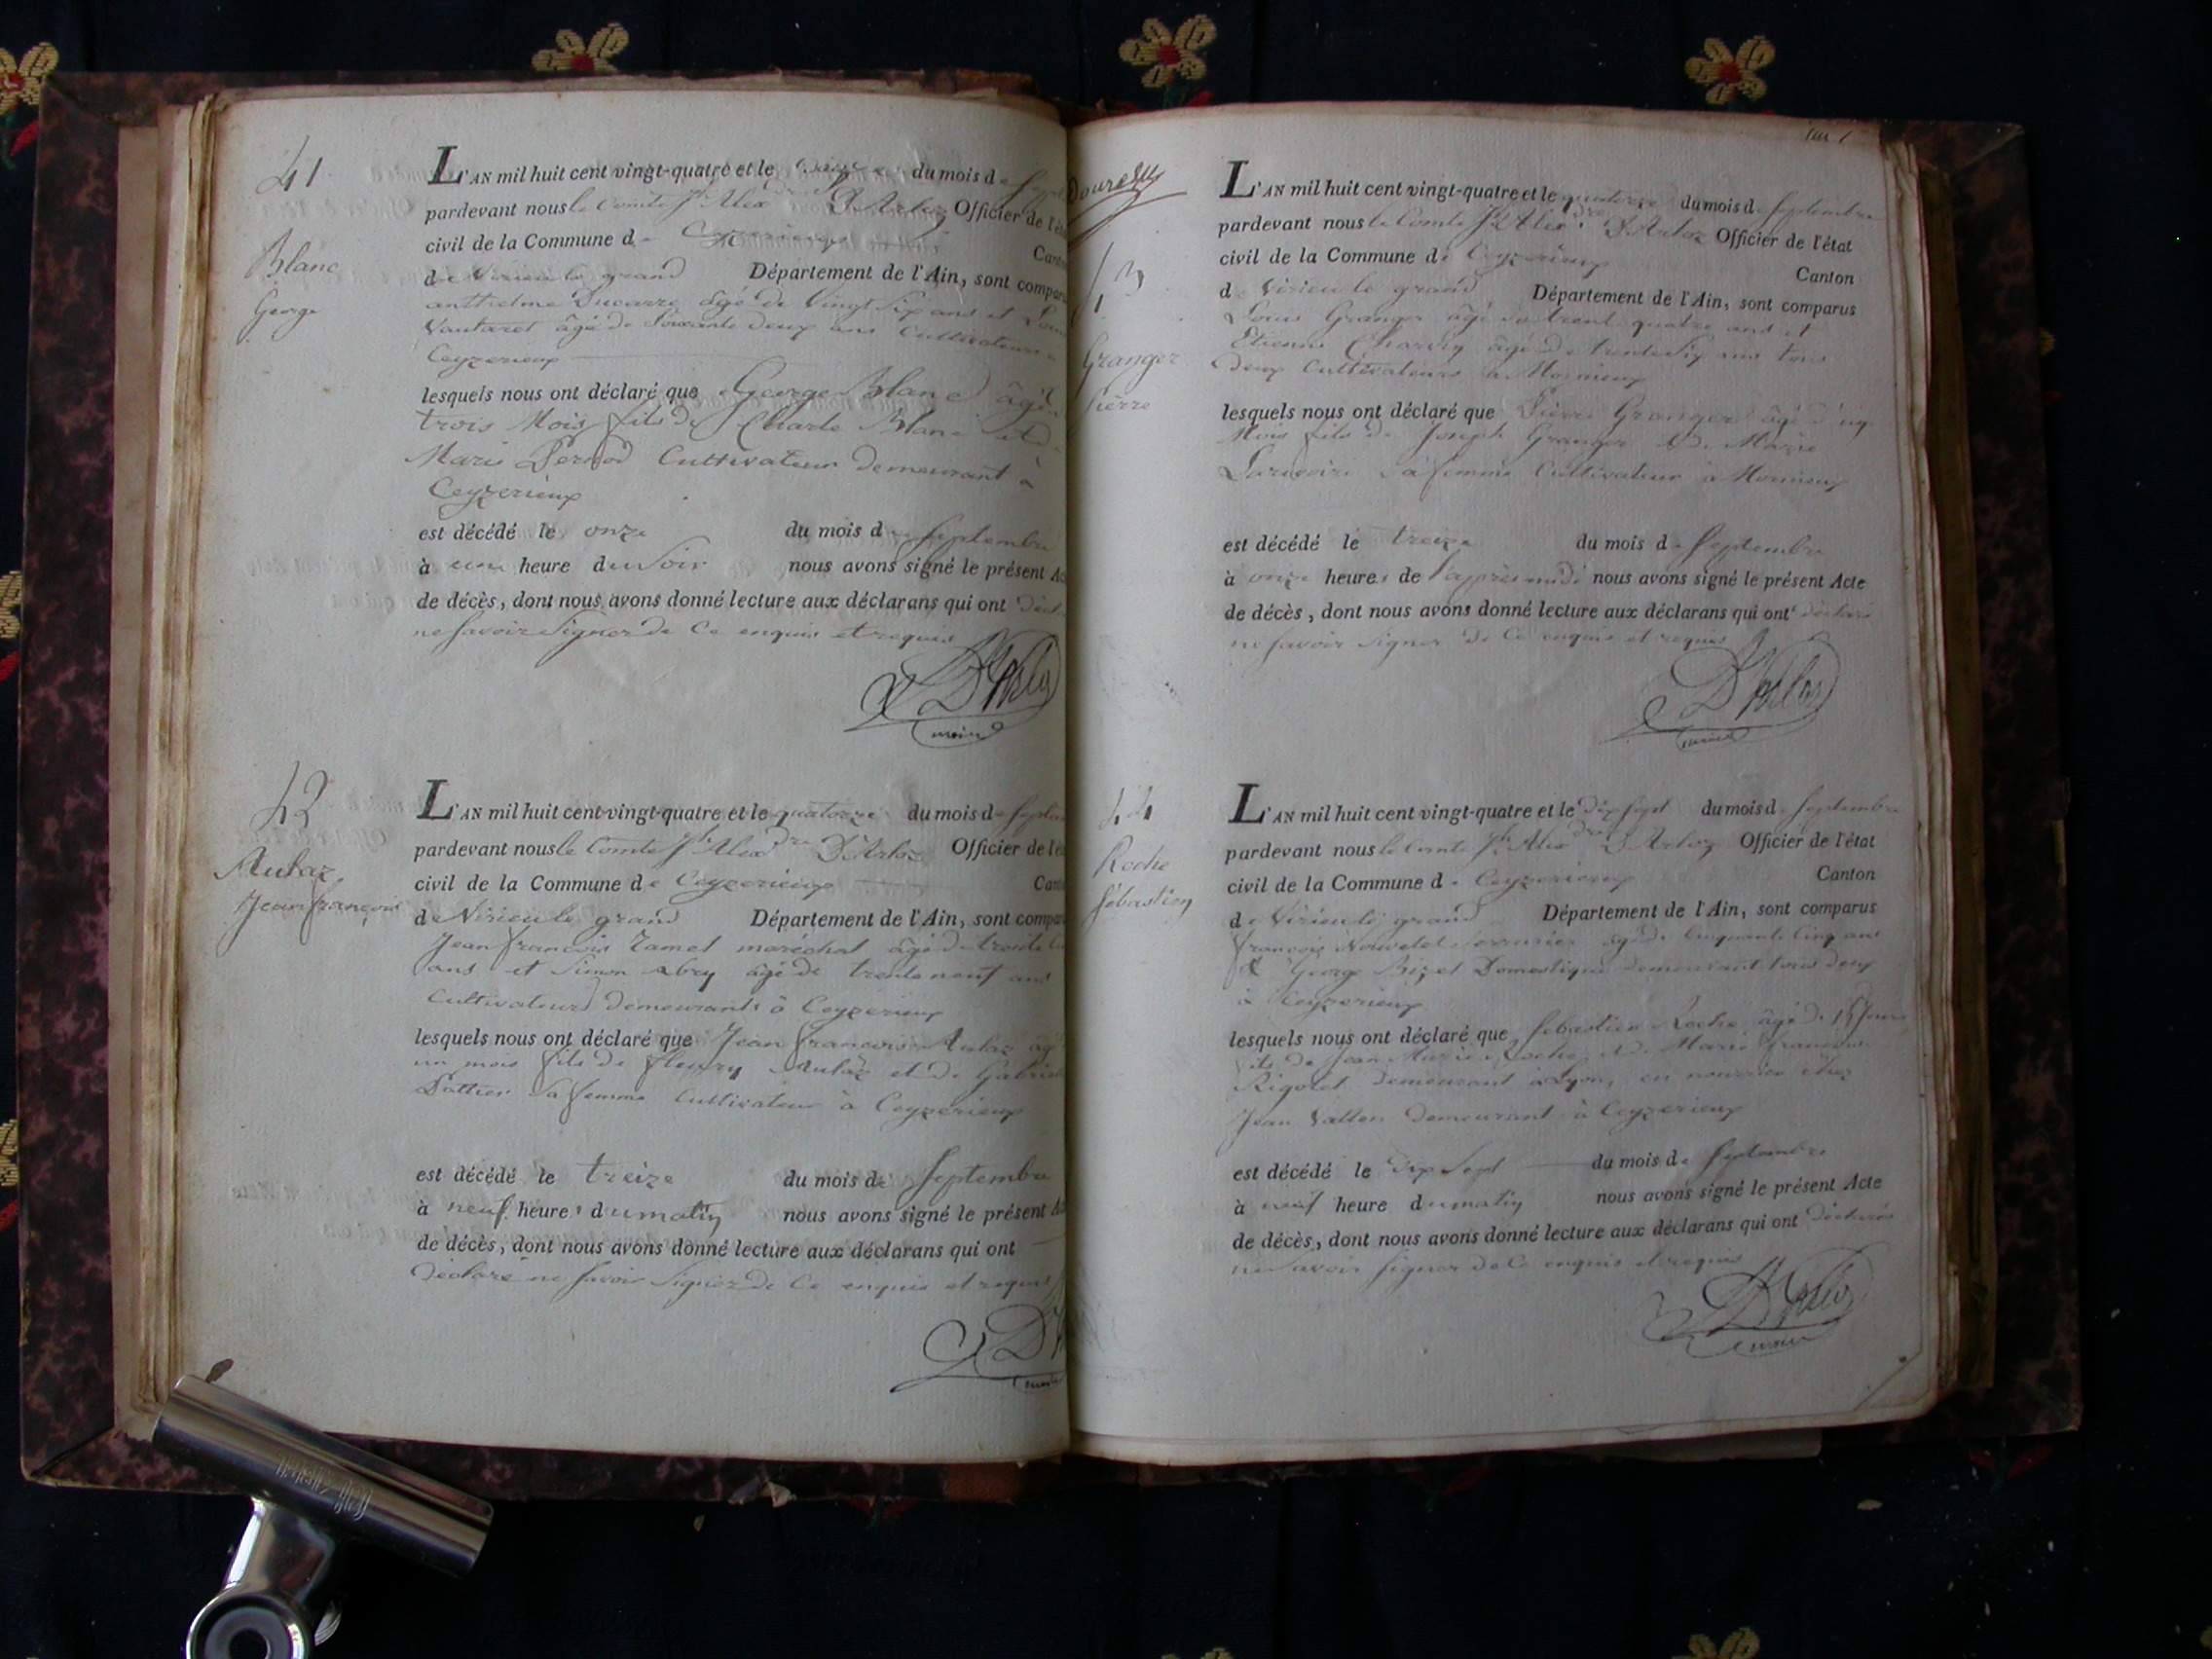 41
Blanc
George
L'AN mil huit cent vingt-quatre et le du mois de
pardevant nous le Comte Jh Alexdre D'Arloz Officier de l'ét
civil de la Commune de Ceyzerieux Canto
de Virieu le grand Département de l'Ain, sont compar
anthelme Ducarre âgé de Vingt Six ans et
Vautaret âgé de Soixante deux ans Cultivateurs
Ceyzerieux
lesquels nous ont déclaré que George Blanc âgé
trois Mois fils de Charle Blanc et
Marie Pernod Cultivateur demeurant à
Ceyzerieux
est décédé le onze du mois de Septembre
à une heure du Soir nous avons signé le présent Ac
de décès, dont nous avons donné lecture aux déclarans qui ont
ne Savoir Signer de Ce enquis et requis
maire
42
Aulaz
Jean françois
L'AN mil huit cent vingt-quatre et le quatorze du mois de
pardevant nous le Comte Jh Alexdre D'Arloz Officier de l'é
civil de la Commune de Ceyzerieux Canto
de Virieu le grand Département de l'Ain, sont compar
Jean françois maréchal âgé de trente
ans et Simon abry âgé de trente neuf ans
Cultivateurs demeurants à Ceyzerieux
lesquels nous ont déclaré que Jean françois Aulaz
un mois fils de fleury Aulaz et de
Sa femme Cultivateur à Ceyzerieux
est décédé le treize du mois de Septembre
à neuf heures du matin nous avons signé le présent Ac
de décès, dont nous avons donné lecture aux déclarans qui ont
déclaré ne Savoir Signer de Ce enquis et requis
43
Granger
Pierre
L'AN mil huit cent vingt-quatre et le quatorze du mois de Septembre
pardevant nous le Comte Jh Alexdre D'Arloz Officier de l'état
civil de la Commune de Ceyzerieux Canton
de Virieu le grand Département de l'Ain, sont comparus
Louis Granger âgé de trente quatre ans et
Etienne Charvin âgé de trente Six ans tous
deux Cultivateurs à Mornieux
lesquels nous ont déclaré que Pierre Granger âgé d'un
Mois fils de Joseph Granger & de Marie
Sa femme Cultivateur à Mornieux
est décédé le treize du mois de Septembre
à onze heures de l'après midi nous avons signé le présent Acte
de décès, dont nous avons donné lecture aux déclarans qui ont déclaré
ne Savoir Signer de Ce enquis et requis
44
Roche
Sébastien
L'AN mil huit cent vingt-quatre et le dix Sept du mois de Septembre
pardevant nous le Comte Jh Alexdre D'Arloz Officier de l'état
civil de la Commune de Ceyzerieux Canton
de Virieu le grand Département de l'Ain, sont comparus
françois Nouvelet Serrurier âgé de Cinquante Cinq ans
& George Bizet Domestique demeurant tous deux
à Ceyzerieux
lesquels nous ont déclaré que Sebastien Roche âgé de 15 Jours
fils de Jean Marie Roche et de Marie françoise
Rigolet demeurant à Lyon, en nourrice chez
Jean Vallon demeurant à Ceyzerieux
est décédé le dix Sept du mois de Septembre
à neuf heure du matin nous avons signé le présent Acte
de décès, dont nous avons donné lecture aux déclarans qui ont déclaré
ne Savoir Signer de Ce enquis et requis